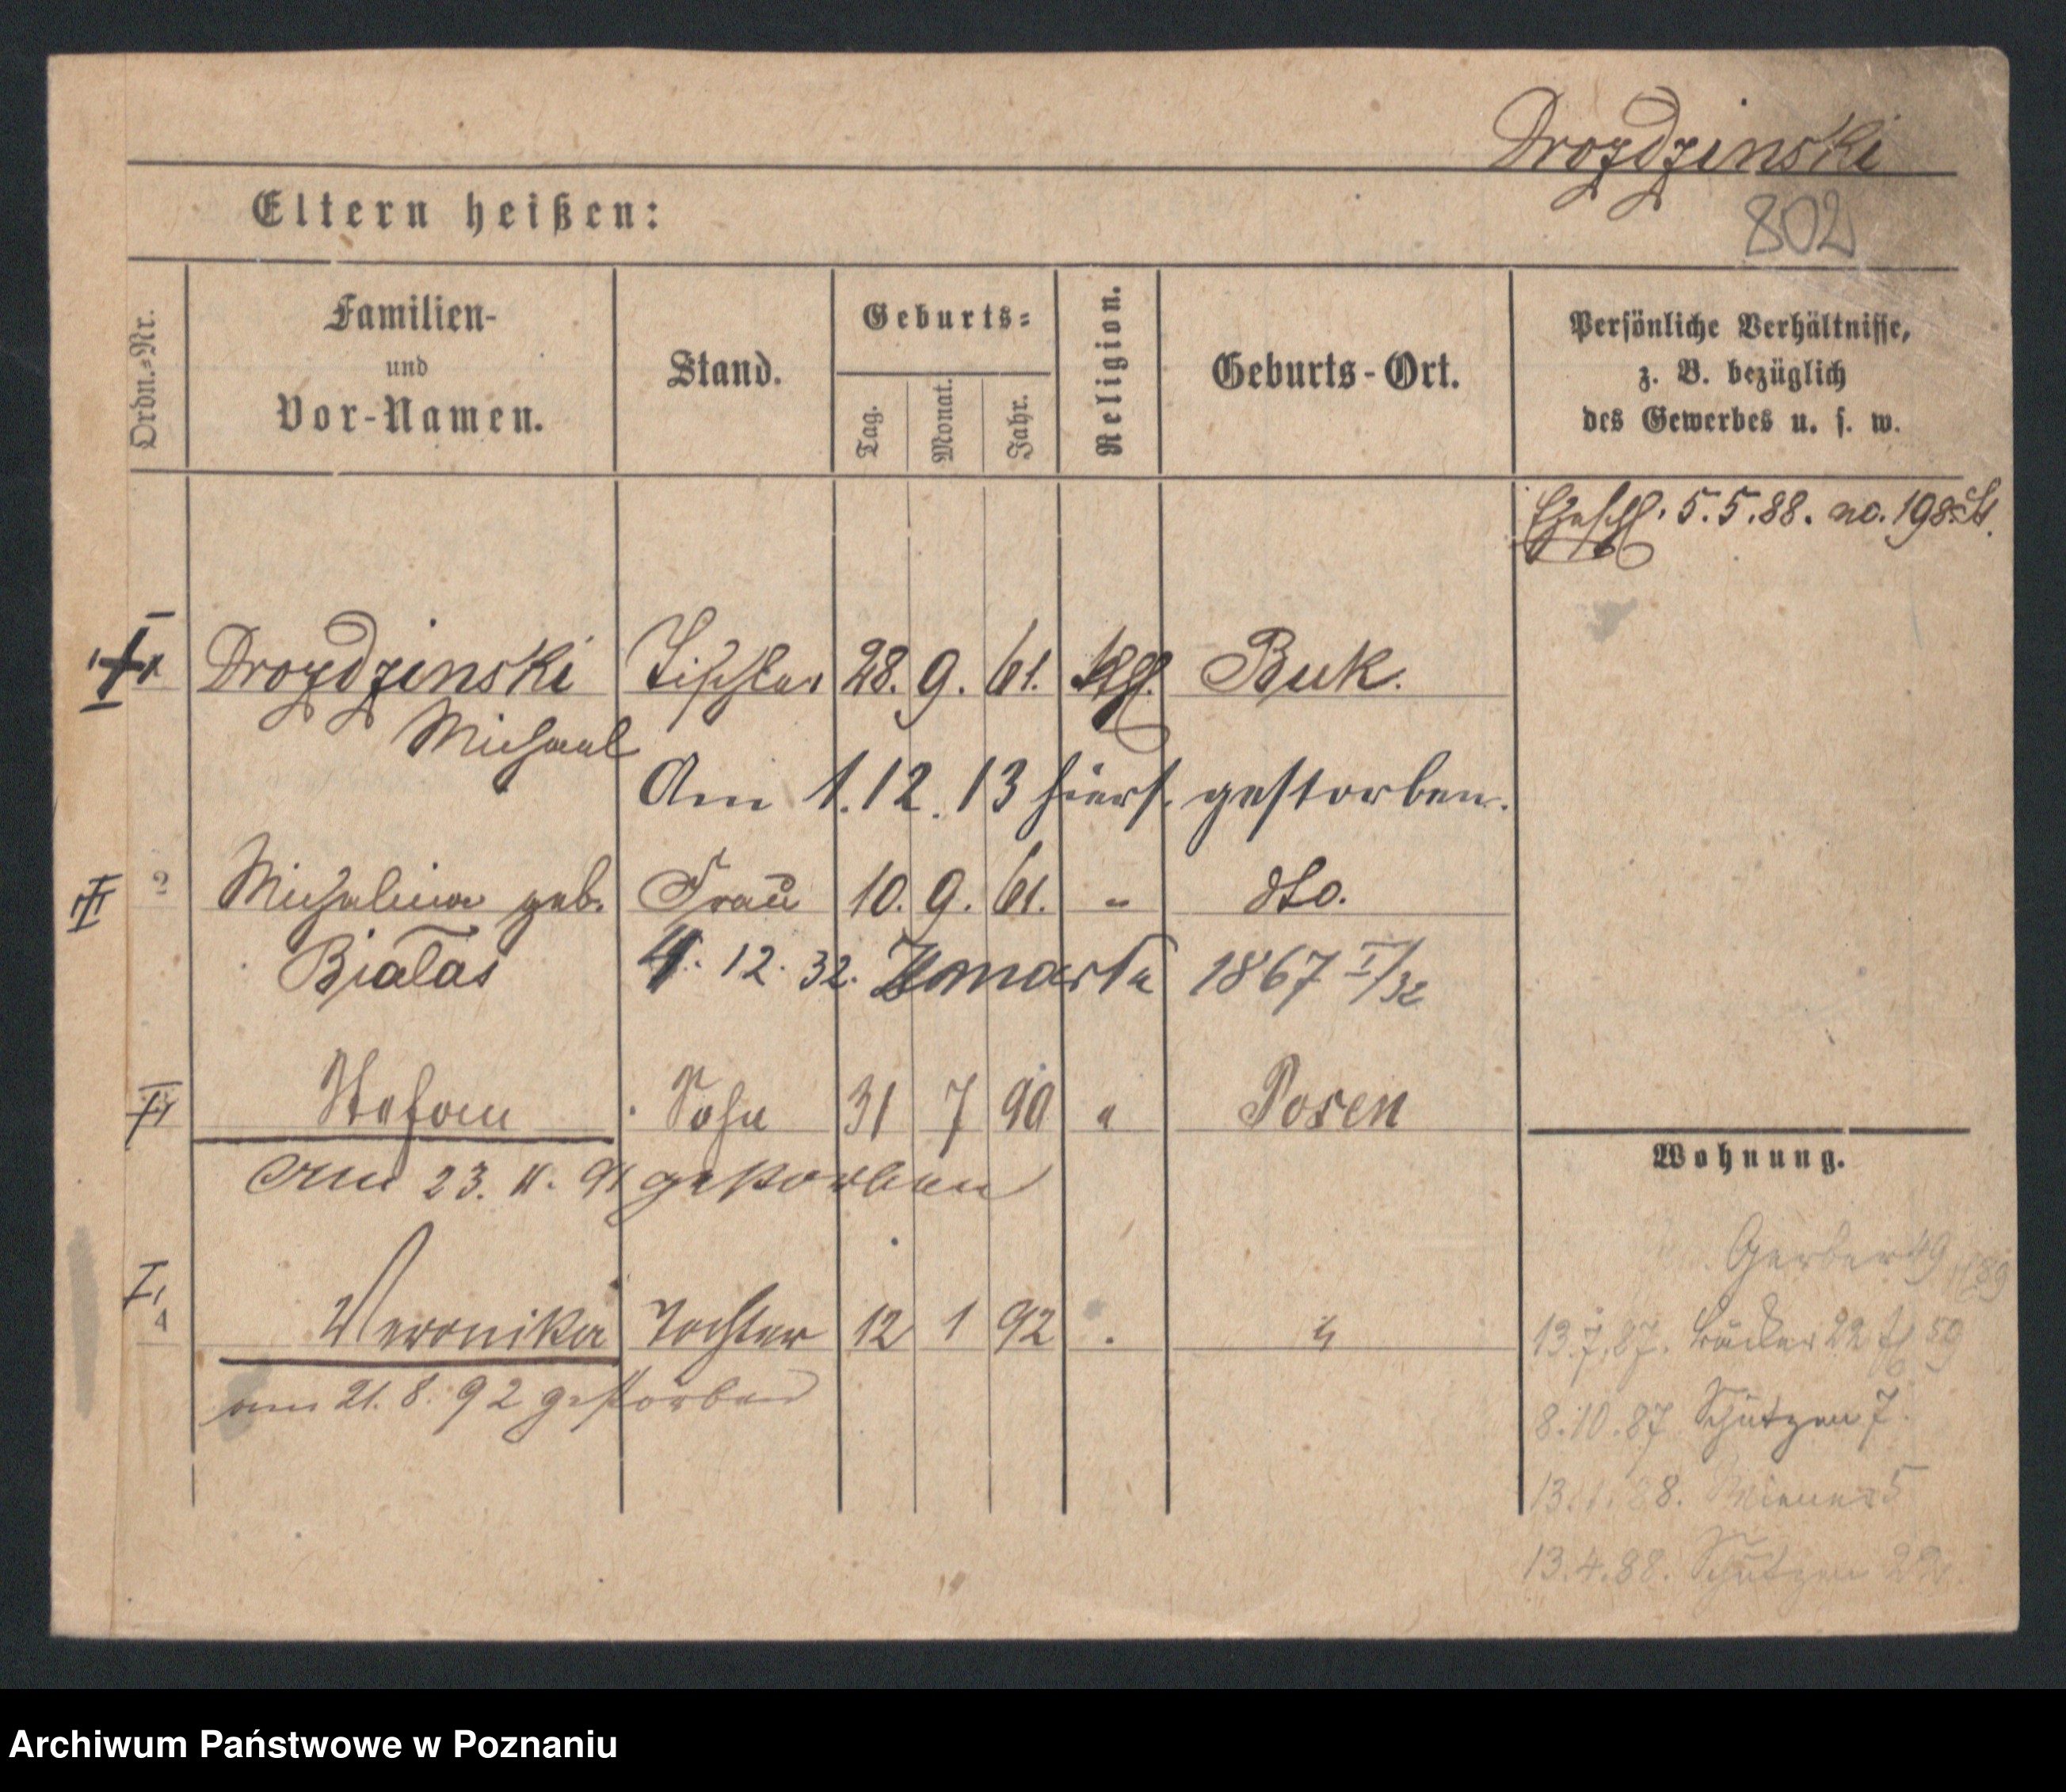 Drozdzinski
802
Eltern heißen:
Ordn.=Nr.
Familien- und Vor-Namen.
Stand.
Geburts=
Tag.
Monat.
Jahr.
Religion.
Geburts-Ort.
Persönliche Verhältnisse,
z. B. bezüglich
des Gewerbes u. s. w.
Eheschl. 5.5.88. no. 198.
Drozdzinski Tischler 28. 9. 61. kth. Buk.
Michael
Am 1.12.13 hiers. gestorben.
II 2 Michalina geb. Frau 10. 9. 61. " dto.
Bialas 4. 12. 32. Zmarła 1867 I/32
Stefan Sohn 31 7 90 " Posen
Am 23. 11. 91 gestorben
4 Veronika Tochter 12 1 92 "
am 21. 8. 92 gestorben
Wohnung.
Gerber 49
13.7.87. 22 59
8.10.87 Schützen 7.
13.1.88. Wiener 5
13.4.88. Schützen 22
Archiwum Państwowe w Poznaniu